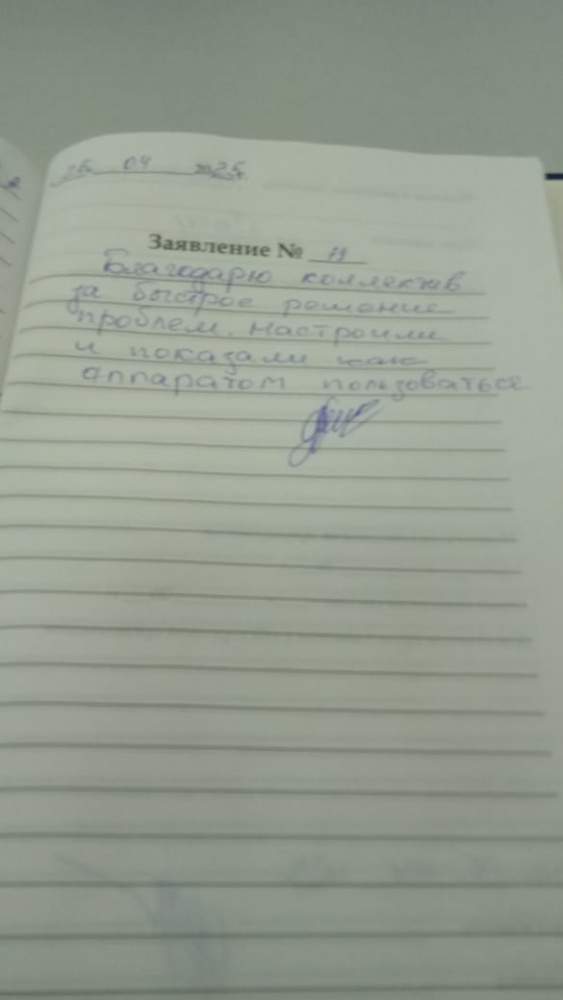 04 2025
Заявление № 11
Благодарю коллектив
за быстрое решение
проблем. Настроили
и показали как
аппаратом пользоваться